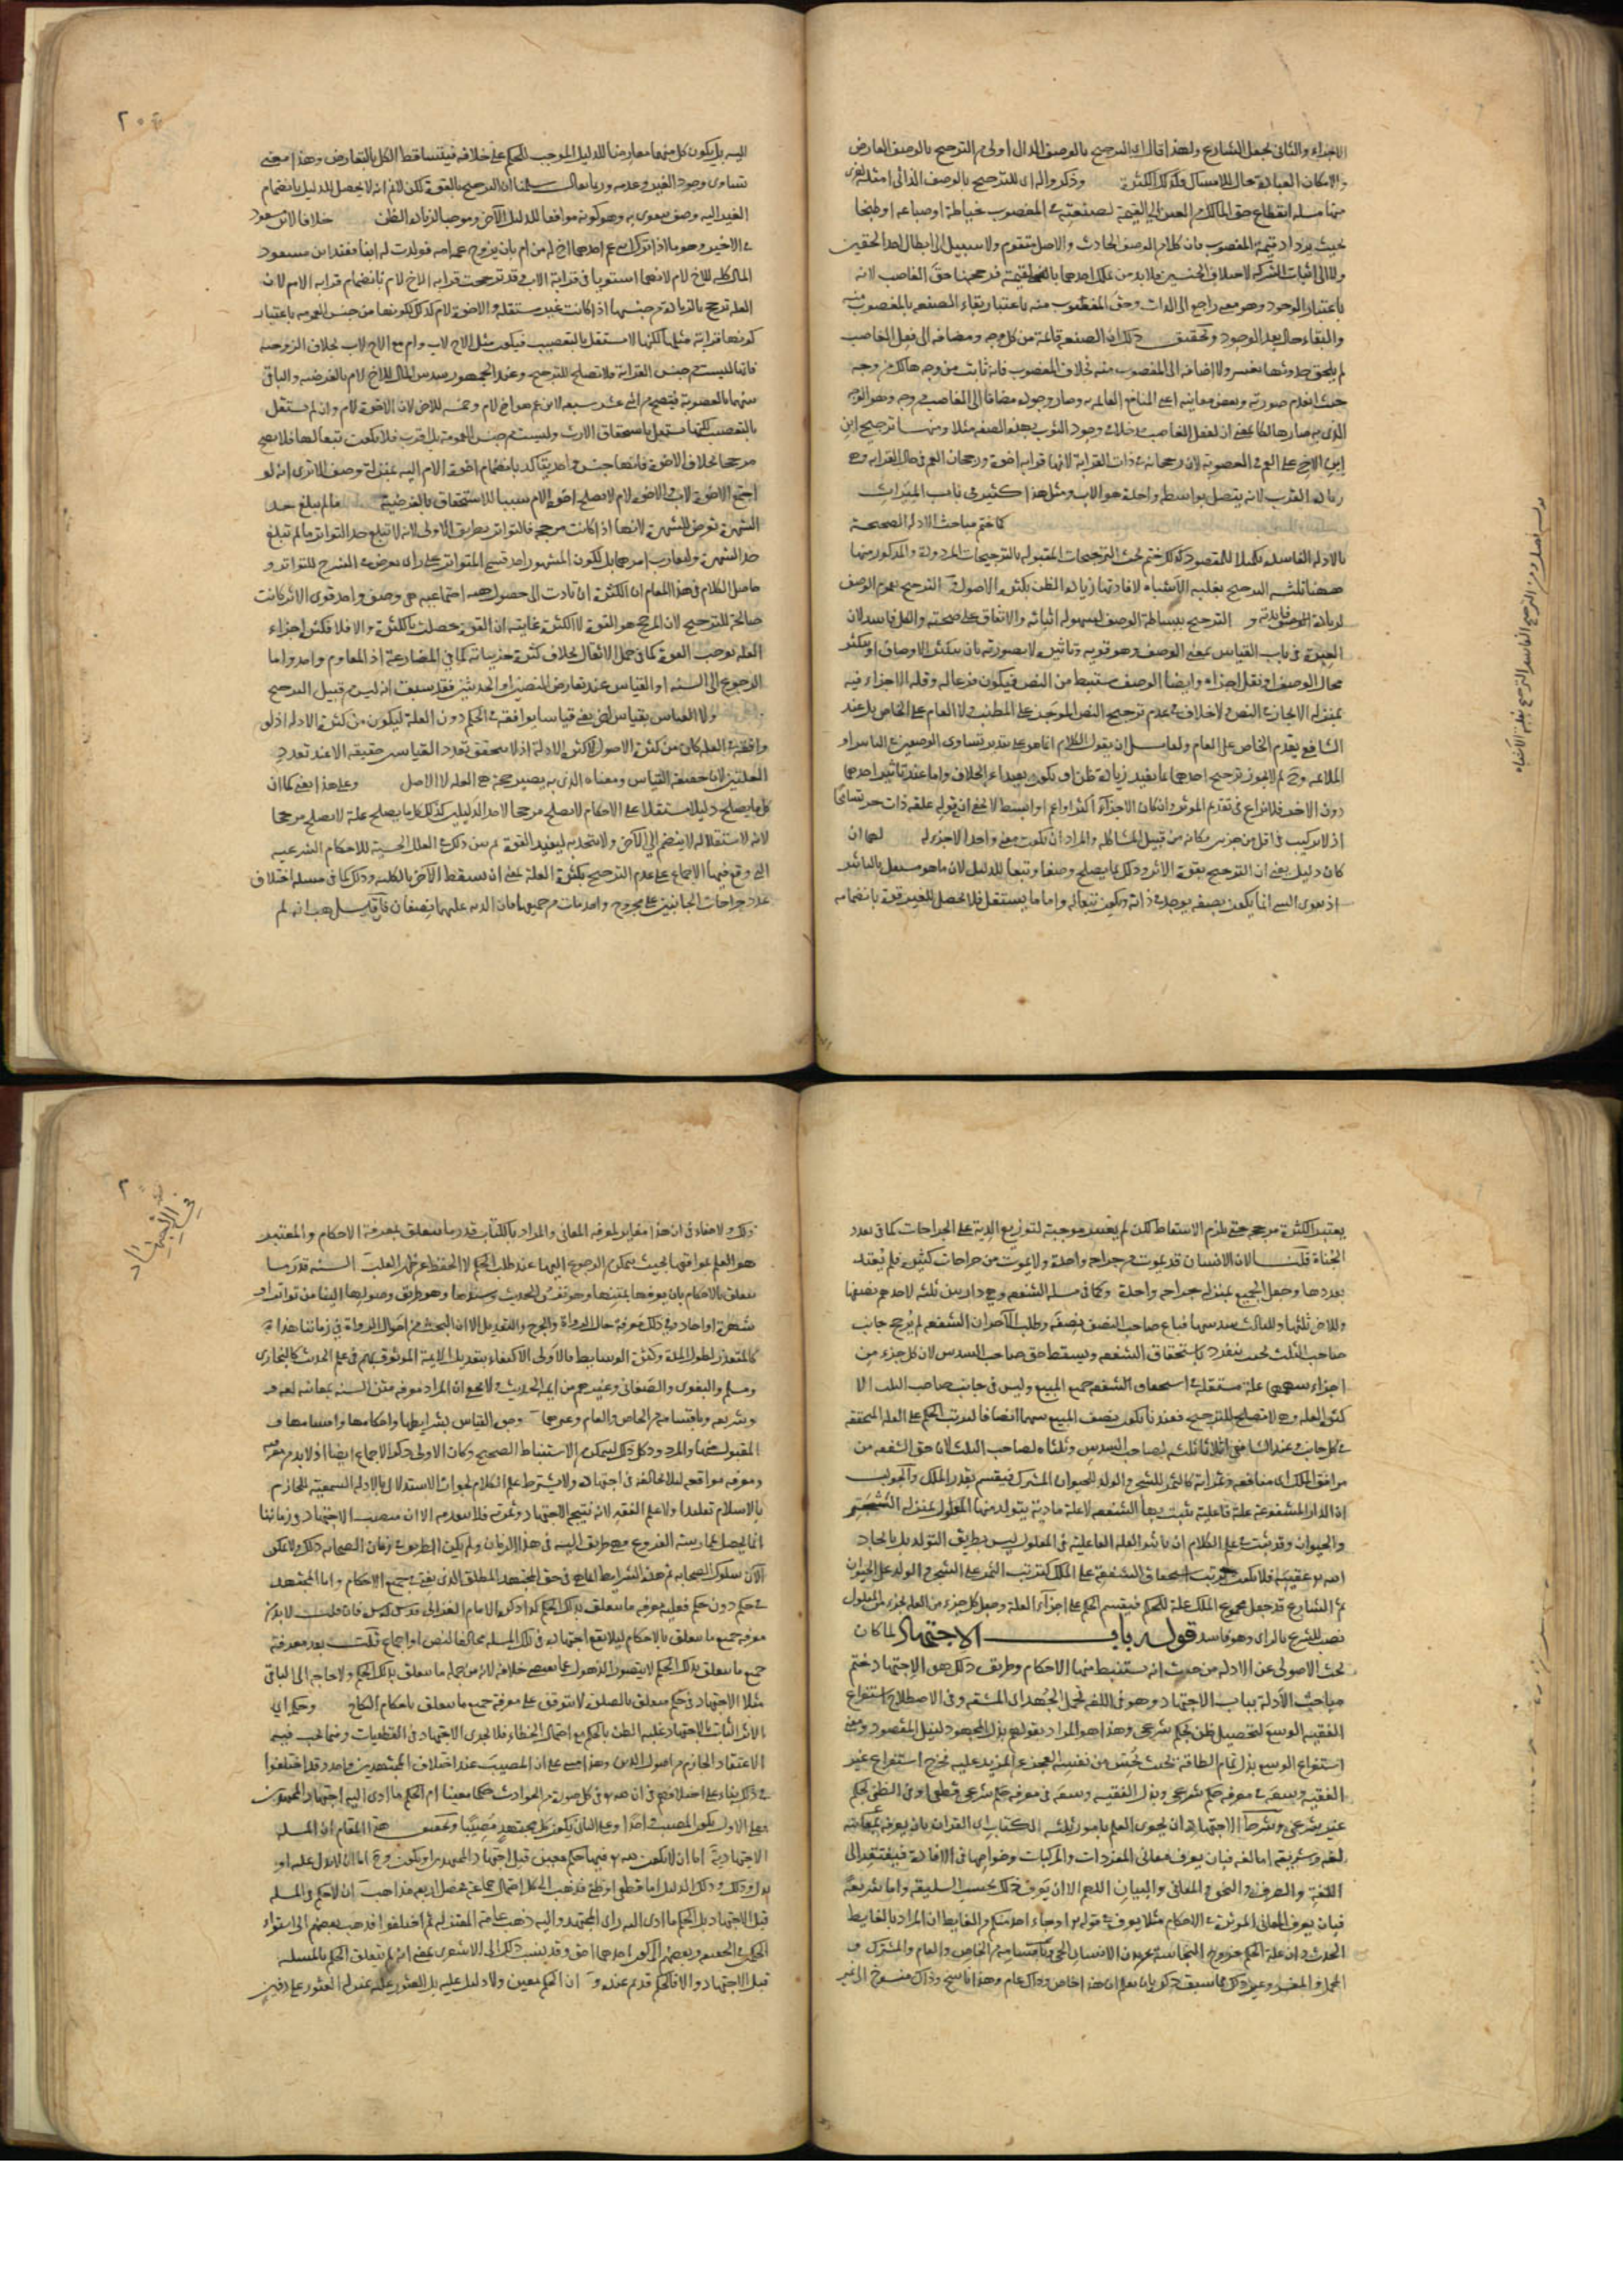 الاجزاء والثاني بجعل الشارع ولهذا قال اي الترجيح بالوصف الذاتي اولى من الترجيح بالوصف العارض
وذكروا له اي للترجيح بالوصف الذاتي امثلة اخرى
منها مسئلة انقطاع حق المالك من العين الى القيمة لصنعته في المغصوب خياطة او صياغة او طبخا
بحيث يزداد قيمة المغصوب فان كلا من الوصف الحادث والاصل متقوم ولا سبيل الى ابطال احد الحقين
ولا الى اثبات الشركة لاختلاف الجنسين فلا بد من تملك احدهما بالقيمة فرجحنا حق الغاصب لانه
باعتبار الوجود وهو معنى راجع الى الذات وحق المغصوب منه باعتبار بقاء الصنعة بالمغصوب منه
والبقاء حال بعد الوجود وتحقيق ذلك ان الصنعة قائمة من كل وجه ومضافة الى فعل الغاصب
لم يلحق حدوثها تغير ولا اضافة الى المغصوب منه بخلاف المغصوب فانه ثابت من وجه هالك من وجه
حيث انعدم صورته وبعض معانيه اعني المنافع القائمة به وصار وجوده مضافا الى الغاصب من وجه وهو الوجه
الذي به صار هالكا يعني ان لفعل الغاصب مدخلا في وجود الثوب بهذه الصفة مثلا ومنها ترجيح ابن
ابن الاخ على العم في العصوبة لان رجحانه في ذات القرابة لانها قرابة اخوة ورجحان العم في حال القرابة وهي
زيادة القرب لانه يتصل بواسطة واحدة هو الاب ومثل هذا كثير في باب الميراث
كما ختم مباحث الادلة الصحيحة
بالادلة الفاسدة تكميلا للمقصود كذلك ختم بحث الترجيحات المقبولة بالترجيحات المردودة والمذكور منها
ههنا ثلثة الترجيح بغلبة الاشباه لافادتها زيادة الظن بكثرة الاصول و الترجيح بعموم الوصف
لزيادة فائدته و الترجيح ببساطة الوصف لسهولة اثباته والاتفاق على صحته والكل فاسد لان
العبرة في باب القياس بمعنى الوصف وهو قوته وتاثيره لا بصورته بان يتكثر الاوصاف او يتكثر
محال الوصف او يقل اجزاءه وايضا الوصف مستنبط من النص فيكون فرعا له وقلة الاجزاء فيه
بمنزلة الايجاز في النص ولا خلاف في عدم ترجيح النص الموجز على المطنب ولا العام على الخاص بل عند
الشافعي يقدم الخاص على العام ولقائل ان يقول الكلام انما هو على تقدير تساوي الوصفين في التاثير او
الملائمة وح لم لا يجوز ترجيح احدهما بما يفيد زيادة ظن او يكون بعيدا عن الخلاف واما عند تاثير احدهما
دون الاخر فلا نزاع في تقديم المؤثر وان كان الاخر اكثر او اعم او ابسط لا يخفى ان قوله علة ذات جزء تسامحا
اذ لا تركيب في اقل من جزئين فكانه من قبيل المشاكلة والمراد ان تكون معنى واحدا لا جزء له لهما ان
كان دليل يعني ان الترجيح بقوة الاثر وذلك بما يصلح وصفا وتبعا للدليل لان ما هو مستقل بالتاثير
اذ تقوي الشيء انما يكون بصفة يوجد في ذاته ويكون تبعا له واما ما يستقل فلا يحصل للغير قوة بانضمامه
الترجيح الفاسد الترجيح بغلبة الاشباه
اليه بل يكون كل منهما معارضا للدليل الموجب للحكم على خلافه فيتساقط الكل بالتعارض وهذا معنى
تساوي وجود الغير وعدمه وربما يقال سلمنا ان الترجيح بالقوة لكن لا نم انه لا يحصل للدليل بانضمام
الغير اليه وصف يتقوى به وهو كونه موافقا للدليل الآخر وموجبا لزيادة الظن خلافا لابن مسعود
في الاخير وهو ما اذا ترك ابني عم احدهما اخ له من ام بان يزوج عمه امه فولدت له ابنا فعند ابن مسعود
المال كله للاخ لام لانهما استويا في قرابة الاب وقد ترجحت قرابة الاخ لام بانضمام قرابة الام لان
العلة ترجح بالزيادة من جنسها اذا كانت غير مستقلة والاخوة لام كذلك لكونها من جنس العمومة باعتبار
كونها قرابة مثلها لكنها لا تستقل بالتعصيب فيكون مثل الاخ لاب وام مع الاخ لاب بخلاف الزوجية
فانها ليست من جنس القرابة فلا تصلح للترجيح وعند الجمهور سدس المال للاخ لام بالفرضية والباقي
بينهما بالعصوبة فيصح من اثني عشر سبعة لابن عم هو اخ لام وخمسة للاخر لان الاخوة لام وان لم تستقل
بالتعصيب لكنها تستقل باستحقاق الارث وليست من جنس العمومة بل اقرب فلا تكون تبعا لها فلا تصلح
مرجحا بخلاف الاخوة فانها جنس واحد يتاكد بانضمام اخوة الام اليه بمنزلة وصف الا ترى انه لو
اجتمع الاخوة لاب والاخوة لام لا تصلح اخوة الام سببا للاستحقاق بالفرضية ما لم يبلغ حد
الشهرة تعرض للشهرة لانها اذا كانت مرجحة فالتواتر بطريق الاولى لانه لا تبلغ حد التواتر ما لم تبلغ
حاصل الكلام في هذا المقام ان الكثرة ان تادت الى حصول هيئة اجتماعية هي وصف واحد قوي الاثر كانت
صالحة للترجيح لان المرجح هو القوة لا الكثرة غايته ان القوة حصلت بالكثرة والا فلا فكثرة اجزاء
العلة توجب القوة كما في حمل الاثقال بخلاف كثرة جزئياته كما في المصارعة اذ المقاوم واحد واما
الرجوع الى السنة او القياس عند تعارض النصين او الحديثين فقد سبق انه ليس من قبيل الترجيح
ولا القياس بقياس اخر يعني قياسا يوافقه في الحكم دون العلة ليكون من كثرة الادلة اذ لو
وافقه في العلة كان من كثرة الاصول لا كثرة الادلة اذ لا يتحقق تعدد القياسين حقيقة الا عند تعدد
العلتين لان حقيقة القياس ومعناه الذي به يصير حجة هي العلة لا الاصل وعلى هذا يعني كما ان
كل ما يصلح دليلا مستقلا على الاحكام لا يصلح مرجحا لاحد الدليلين كذلك كل ما يصلح علة لا يصلح مرجحا
لانه لاستقلاله لا ينضم الى الآخر ولا يتحد به ليفيد القوة ثم بين ذلك في العلل الحسية للاحكام الشرعية
التي وقع فيها الاجماع على عدم الترجيح بكثرة العلة يعني ان يسقط الآخر بالكلية وذلك كما في مسئلة اختلاف
عدد جراحات الجانيين على مجروح واحد مات من جميعها فان الدية عليهما نصفان فان قيل هب انه لم
يعتبر الكثرة مرجحة حتى يلزم الاسقاط لكن لم يعتبر موجبة لتوزيع الدية على الجراحات كما في تعدد
الجناة قلنا لان الانسان قد يموت من جراحة واحدة ولا يموت من جراحات كثيرة فلم يعتد
بعددها وجعل الجميع بمنزلة جراحة واحدة وكما في مسئلة الشفعة وهي دار بين ثلثة لاحدهم نصفها
وللاخر ثلثها وللثالث سدسها فباع صاحب النصف نصفه وطلب الآخران الشفعة لم يرجح جانب
صاحب الثلث بحيث ينفرد باستحقاق الشفعة ويسقط حق صاحب السدس لان كل جزء من
اجزاء سهمهما علة مستقلة في استحقاق الشفعة جميع المبيع وليس في جانب صاحب الثلث الا
كثرة العلة وهي لا تصلح للترجيح فعندنا يكون نصف المبيع بينهما انصافا لترتب الحكم على العلة المتحققة
في كل جانب وعند الشافعي اثلاثا ثلثه لصاحب السدس وثلثاه لصاحب الثلث لان حق الشفعة من
مرافق الملك اي منافعه وثمراته كالثمر للشجر والولد للحيوان المشترك فيقسم بقدر الملك والجواب
ان الدار المشفوعة علة فاعلية يثبت بها الشفعة لا علة مادية يتولد منها المعلول بمنزلة الشجر
والحيوان وقد ثبت في علم الكلام ان تاثير العلة الفاعلية في المعلول ليس بطريق التولد بل بايجاد
الله تعالى عقيبه فلا يكون ترتب استحقاق الشفعة على الملك كترتب الثمر على الشجر والولد على الحيوان
ثم الشارع قد جعل مجموع الملك علة للحكم فتقسيم الحكم على اجزاء العلة وجعل كل جزء من العلة لجزء من المعلول
نصب للشرع بالراي وهو فاسد قوله باب الاجتهاد لما كان
بحث الاصولي عن الادلة من حيث انه يستنبط منها الاحكام وطريق ذلك هو الاجتهاد ختم
مباحث الادلة بباب الاجتهاد وهو في اللغة تحمل الجهد اي المشقة وفي الاصطلاح استفراغ
الفقيه الوسع لتحصيل ظن بحكم شرعي وهذا هو المراد بقولهم بذل المجهود لنيل المقصود ومعنى
استفراغ الوسع بذل تمام الطاقة بحيث يحس من نفسه العجز عن المزيد عليه فخرج استفراغ غير
الفقيه وسعه في معرفة حكم شرعي وبذل الفقيه وسعه في معرفة حكم شرعي قطعي او في الظن بحكم
غير شرعي وشرط الاجتهاد ان يحوي العلم بامور ثلثة الكتاب اي القران بان يعرفه بمعانيه
لغة وشريعة اما لغة فبان يعرف معاني المفردات والمركبات وخواصها في الافادة فيفتقر الى
اللغة والصرف والنحو والمعاني والبيان اللهم الا ان يعرف ذلك بحسب السليقة واما شريعة
فبان يعرف المعاني المؤثرة في الاحكام مثلا يعرف في قوله تعالى او جاء احد منكم من الغايط ان المراد بالغايط
الحدث وان علة الحكم خروج النجاسة عن بدن الانسان الحي وباقسامه من الخاص والعام والمشترك و
المجمل والمفسر وغير ذلك مما سبق ذكره بان يعلم ان هذا خاص وذاك عام وهذا ناسخ وذاك منسوخ الى غير
في الاجتهاد
ذلك ولا خفاء في ان هذا مغاير لمعرفة المعاني والمراد بالكتاب قدر ما يتعلق بمعرفة الاحكام والمعتبر
هو العلم بمواقعها بحيث يتمكن من الرجوع اليها عند طلب الحكم لا الحفظ عن ظهر القلب السنة قدر ما
يتعلق بالاحكام بان يعرفها بمتنها وهو نفس الحديث وسندها وهو طريق وصولها الينا من تواتر او
شهرة او احاد وفي ذلك معرفة حال الرواة والجرح والتعديل الا ان البحث عن احوال الرواة في زماننا هذا
كالمتعذر لطول المدة وكثرة الوسايط فالاولى الاكتفاء بتعديل الايمة الموثوق بهم في علم الحديث كالبخاري
ومسلم والبغوي والصغاني وغيرهم من ايمة الحديث ولا يخفى ان المراد معرفة متن السنة بمعانيه لغة و
وشريعة وباقسامه من الخاص والعام وغيرهما وجوه القياس بشرايطها واحكامها واقسامها و
المقبول منها والمردود وكل ذلك ليتمكن من الاستنباط الصحيح وكان الاولى ذكر الاجماع ايضا اذ لا بد من معرفته
ومعرفة مواقعه لئلا يخالفه في اجتهاده ولا يشترط علم الكلام لجواز الاستدلال بالادلة السمعية للجازم
بالاسلام تقليدا ولا علم الفقه لانه نتيجة الاجتهاد وثمرته فلا يتقدمه الا ان منصب الاجتهاد في زماننا
انما يحصل بممارسة الفروع فهي طريق اليه في هذا الزمان ولم يكن الطريق في زمان الصحابة ذلك ولا يمكن
الآن سلوك طريق الصحابة ثم هذه الشرايط انما هي في حق المجتهد المطلق الذي يفتي في جميع الاحكام واما المجتهد
في حكم دون حكم فعليه معرفة ما يتعلق بذلك الحكم كذا ذكره الامام الغزالي فان قلت لا بد من
معرفة جميع ما يتعلق بالاحكام لئلا يقع اجتهاده في تلك المسئلة مخالفا لنص او اجماع قلت بعد معرفة
جميع ما يتعلق بذلك الحكم لا يتصور الذهول عما يقتضي خلافه لانه من جملة ما يتعلق بذلك الحكم ولا حاجة الى الباقي
مثلا الاجتهاد في حكم متعلق بالصلوة لا يتوقف على معرفة جميع ما يتعلق باحكام النكاح وحكمه اي
الاثر الثابت بالاجتهاد غلبة الظن بالحكم مع احتمال الخطاء فلا يجري الاجتهاد في القطعيات وفيما يجب فيه
الاعتقاد الجازم من اصول الدين وهذا مبني على ان المصيب عند اختلاف المجتهدين واحد وقد اختلفوا
في ذلك بناء على اختلافهم في ان لله تعالى في كل صورة من الحوادث حكما معينا ام الحكم ما ادى اليه اجتهاد المجتهدين
فعلى الاول يكون المصيب واحدا وعلى الثاني يكون كل مجتهد مصيبا وتحقيق هذا المقام ان المسئلة
الاجتهادية اما ان لا يكون لله تعالى فيها حكم معين قبل اجتهاد المجتهد او يكون وح اما ان لا يدل عليه او
يدل وذلك الدليل اما قطعي او ظني فذهب الى كل احتمال جماعة فحصل اربعة مذاهب ان لا حكم في المسئلة
قبل الاجتهاد بل الحكم ما ادى اليه راي المجتهد واليه ذهب عامة المعتزلة ثم اختلفوا فذهب بعضهم الى استواء
الحكمين في الحقية وبعضهم الى كون احدهما احق وقد ينسب ذلك الى الاشعري بمعنى انه لم يتعلق الحكم بالمسئلة
قبل الاجتهاد والا فالحكم قديم عنده و ان الحكم معين ولا دليل عليه بل العثور عليه بمنزلة العثور على دفين